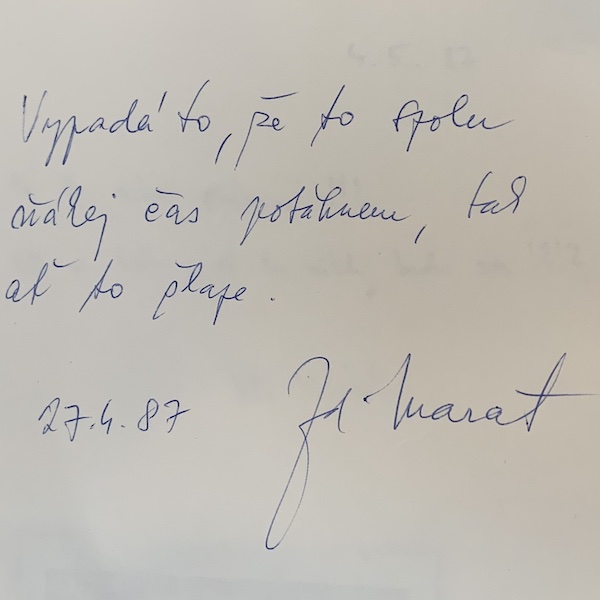 Vypadá to, že to spolu
ňákej čas potáhnem, tak
ať to šlape.
27.4.87 Zd. Marat